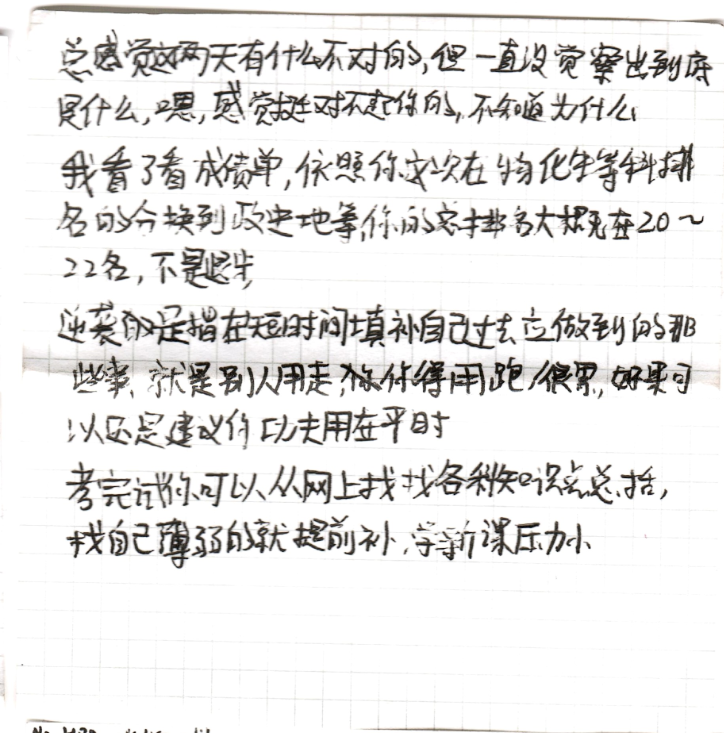 总感觉这两天有什么不对的,但一直没觉察出到底
是什么,嗯,感觉挺对不起你的,不知道为什么
我看了看成绩单,依照你这次在物化生等科排
名的分换到政史地等,你的总排名大概在20~
22名,不是退步,
逆袭的是指在短时间填补自己过去应做到的那
些事,就是别人用走,你得用跑,很累,如果可
以还是建议你功夫用在平时
考完试你可以从网上找找各种知识点总括,
找自己薄弱的就提前补,学新课压力小